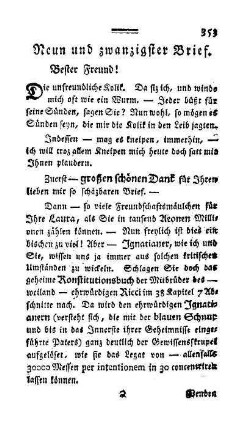 353
Neun und zwanzigster Brief.
Bester Freund!
Die unfreundliche Kolik. Da siz ich, und winde
mich oft wie ein Wurm. — Jeder büßt für
seine Sünden, sagen Sie? Nun wohl, so mögen es
Sünden seyn, die mir die Kolik in den Leib jagten.
Indessen — mag es kneipen, immerhin, — ich
will troz allem Kneipen mich heute doch satt mit
Ihnen plaudern.
Zuerst — großen schönen Dank für Ihren
lieben mir so schäzbaren Brief. —
Dann — so viele Freundschaftsmäulchen für
Ihre Laura, als Sie in tausend Aeonen Millio
nen zählen können. — Nun freylich ist dies ein
bischen zu viel! Aber — Ignatianer, wie ich und
Sie, wissen uns ja immer aus solchen kritischen
Umständen zu wickeln. Schlagen Sie doch das
geheime Konstitutionsbuch der Mitbrüder des —
weiland — ehrwürdigen Ricci im 38 Kapitel 7 Ab
schnitte nach. Da wird den ehrwürdigen Ignati
anern (versteht sich, die mit der blauen Schnur
und bis in das Innerste ihrer Geheimnisse einge
führte Paters) ganz deutlich der Gewissensskrupel
aufgelöset, wie sie das Legat von — allenfalls
30000 Messen per intentionem in 30 concentriren
lassen können.
Z
Wenden